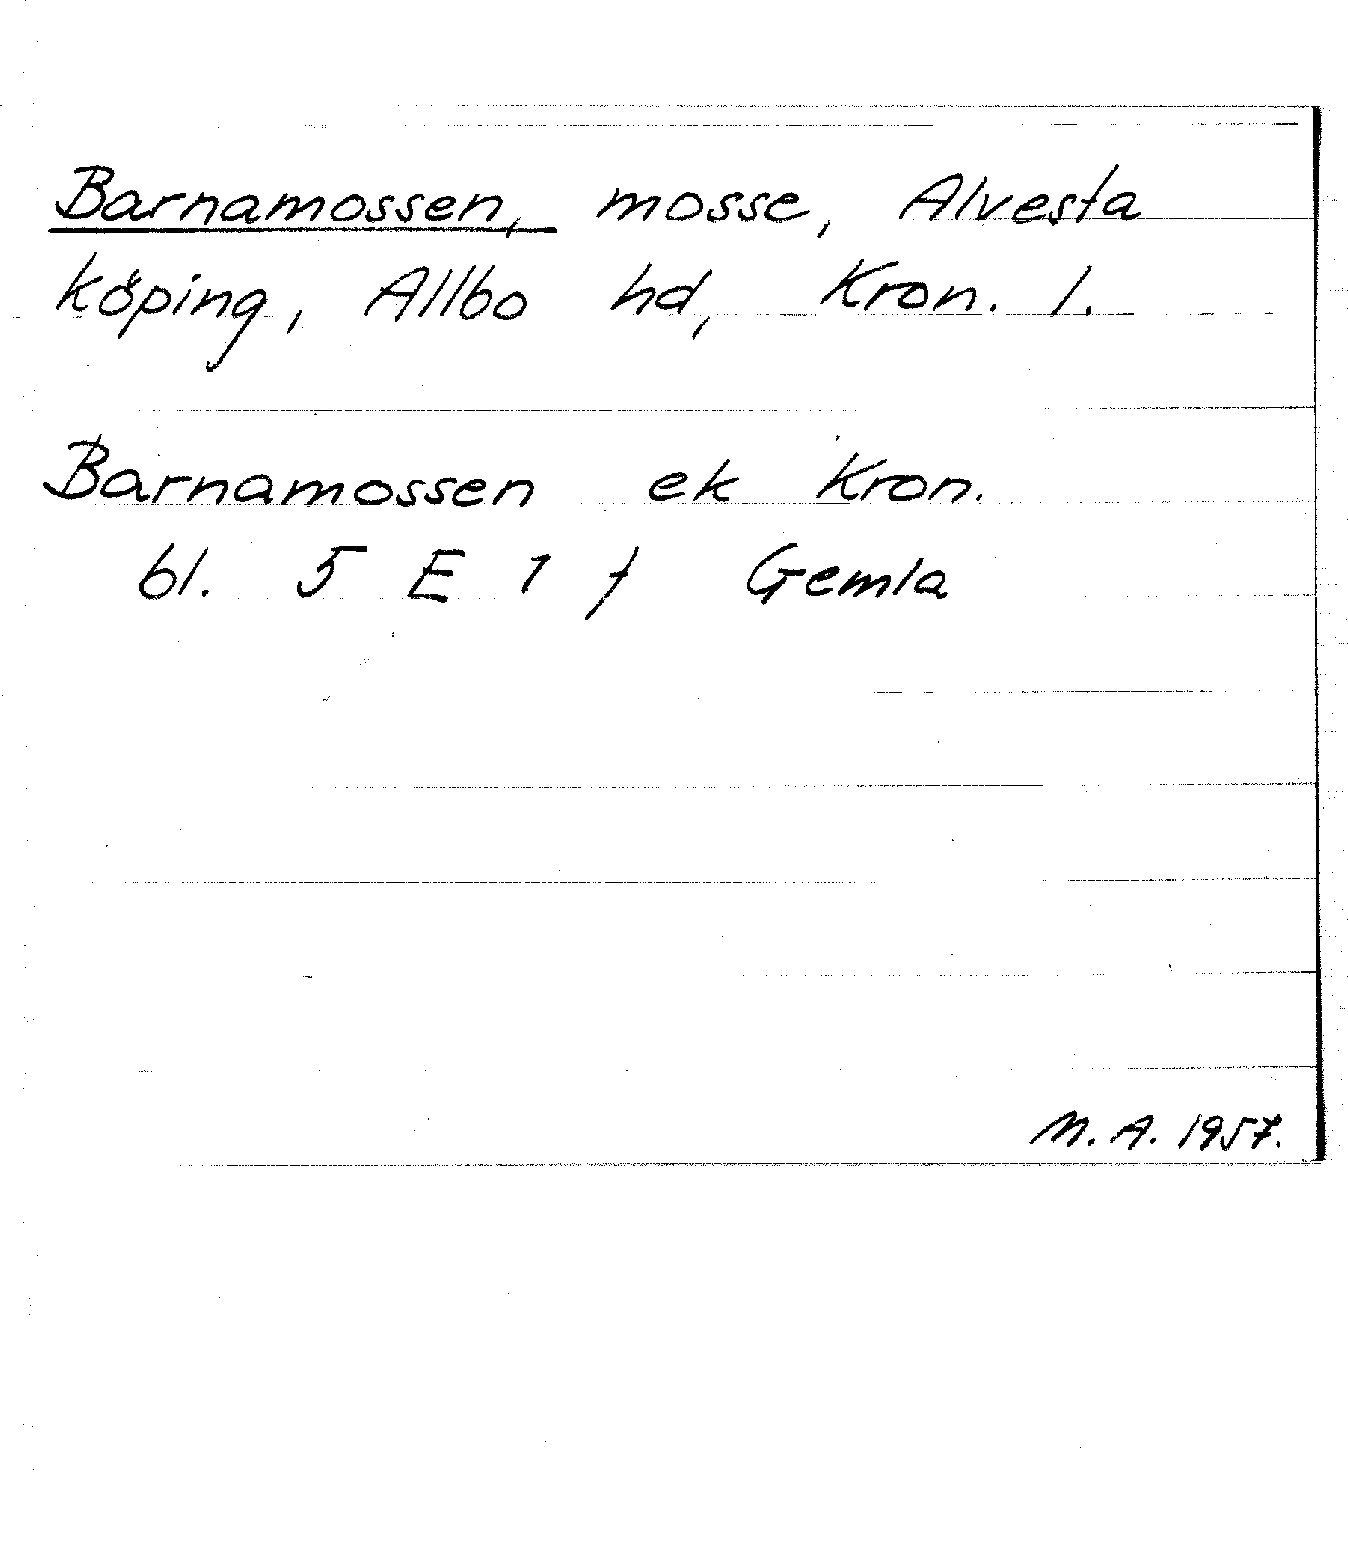 Barnamossen, mosse, Alvesta
köping, Allbo hd, Kron. l.
Barnamossen ek Kron.
bl. 5 E 1 f Gemla
M. A. 1957.